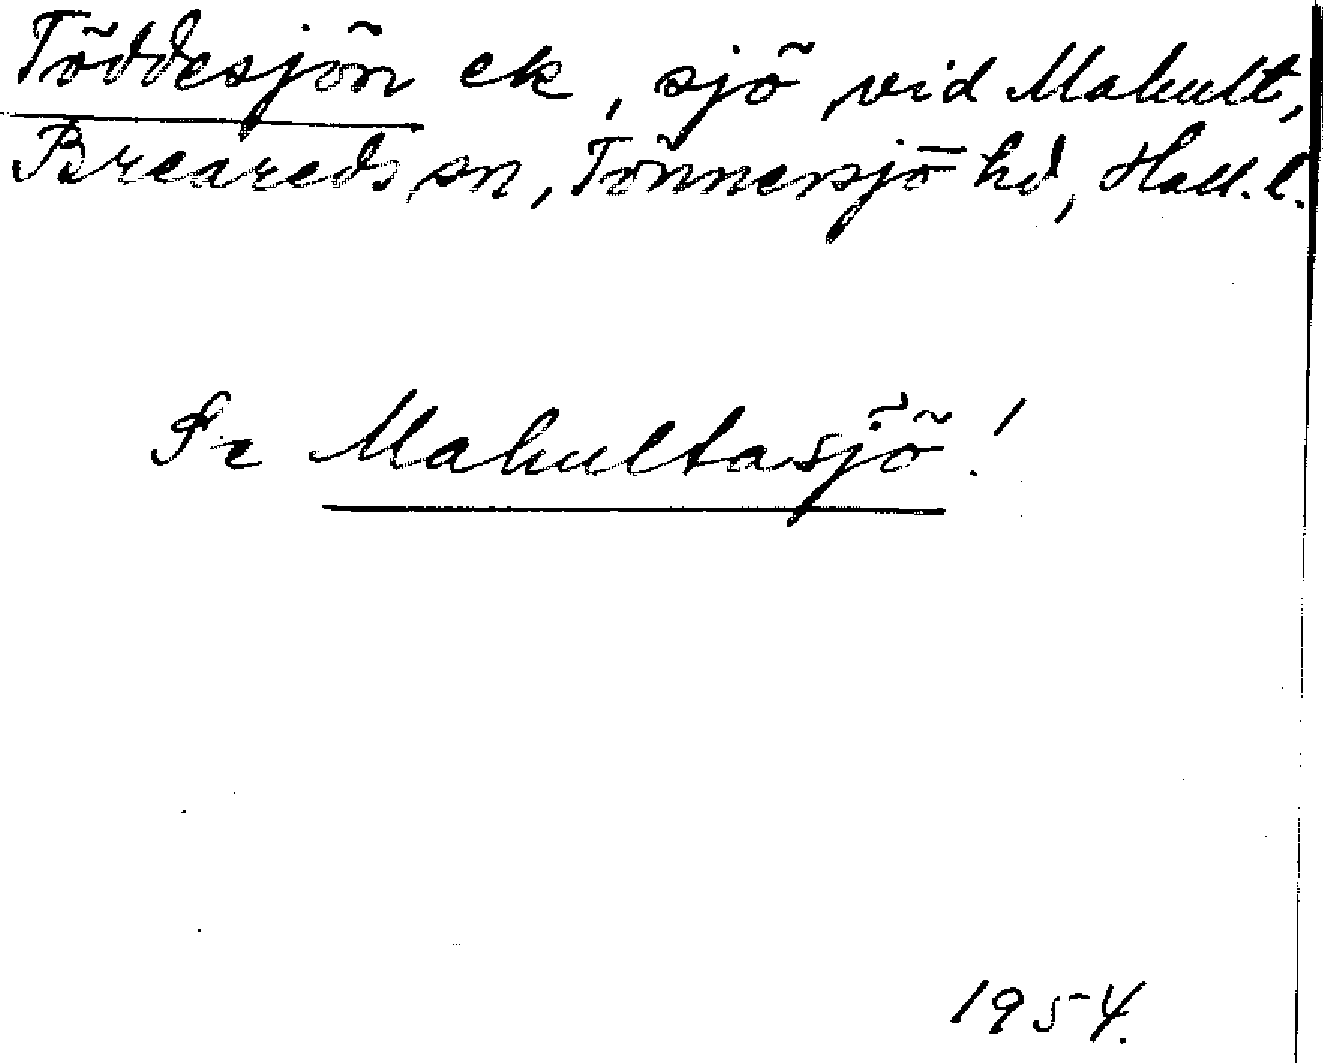 Töddesjön ek, sjö vid Mahult,
Breareds sn, Tönnersjö hd, Hall. l.
Se Mahultasjö!
1954.